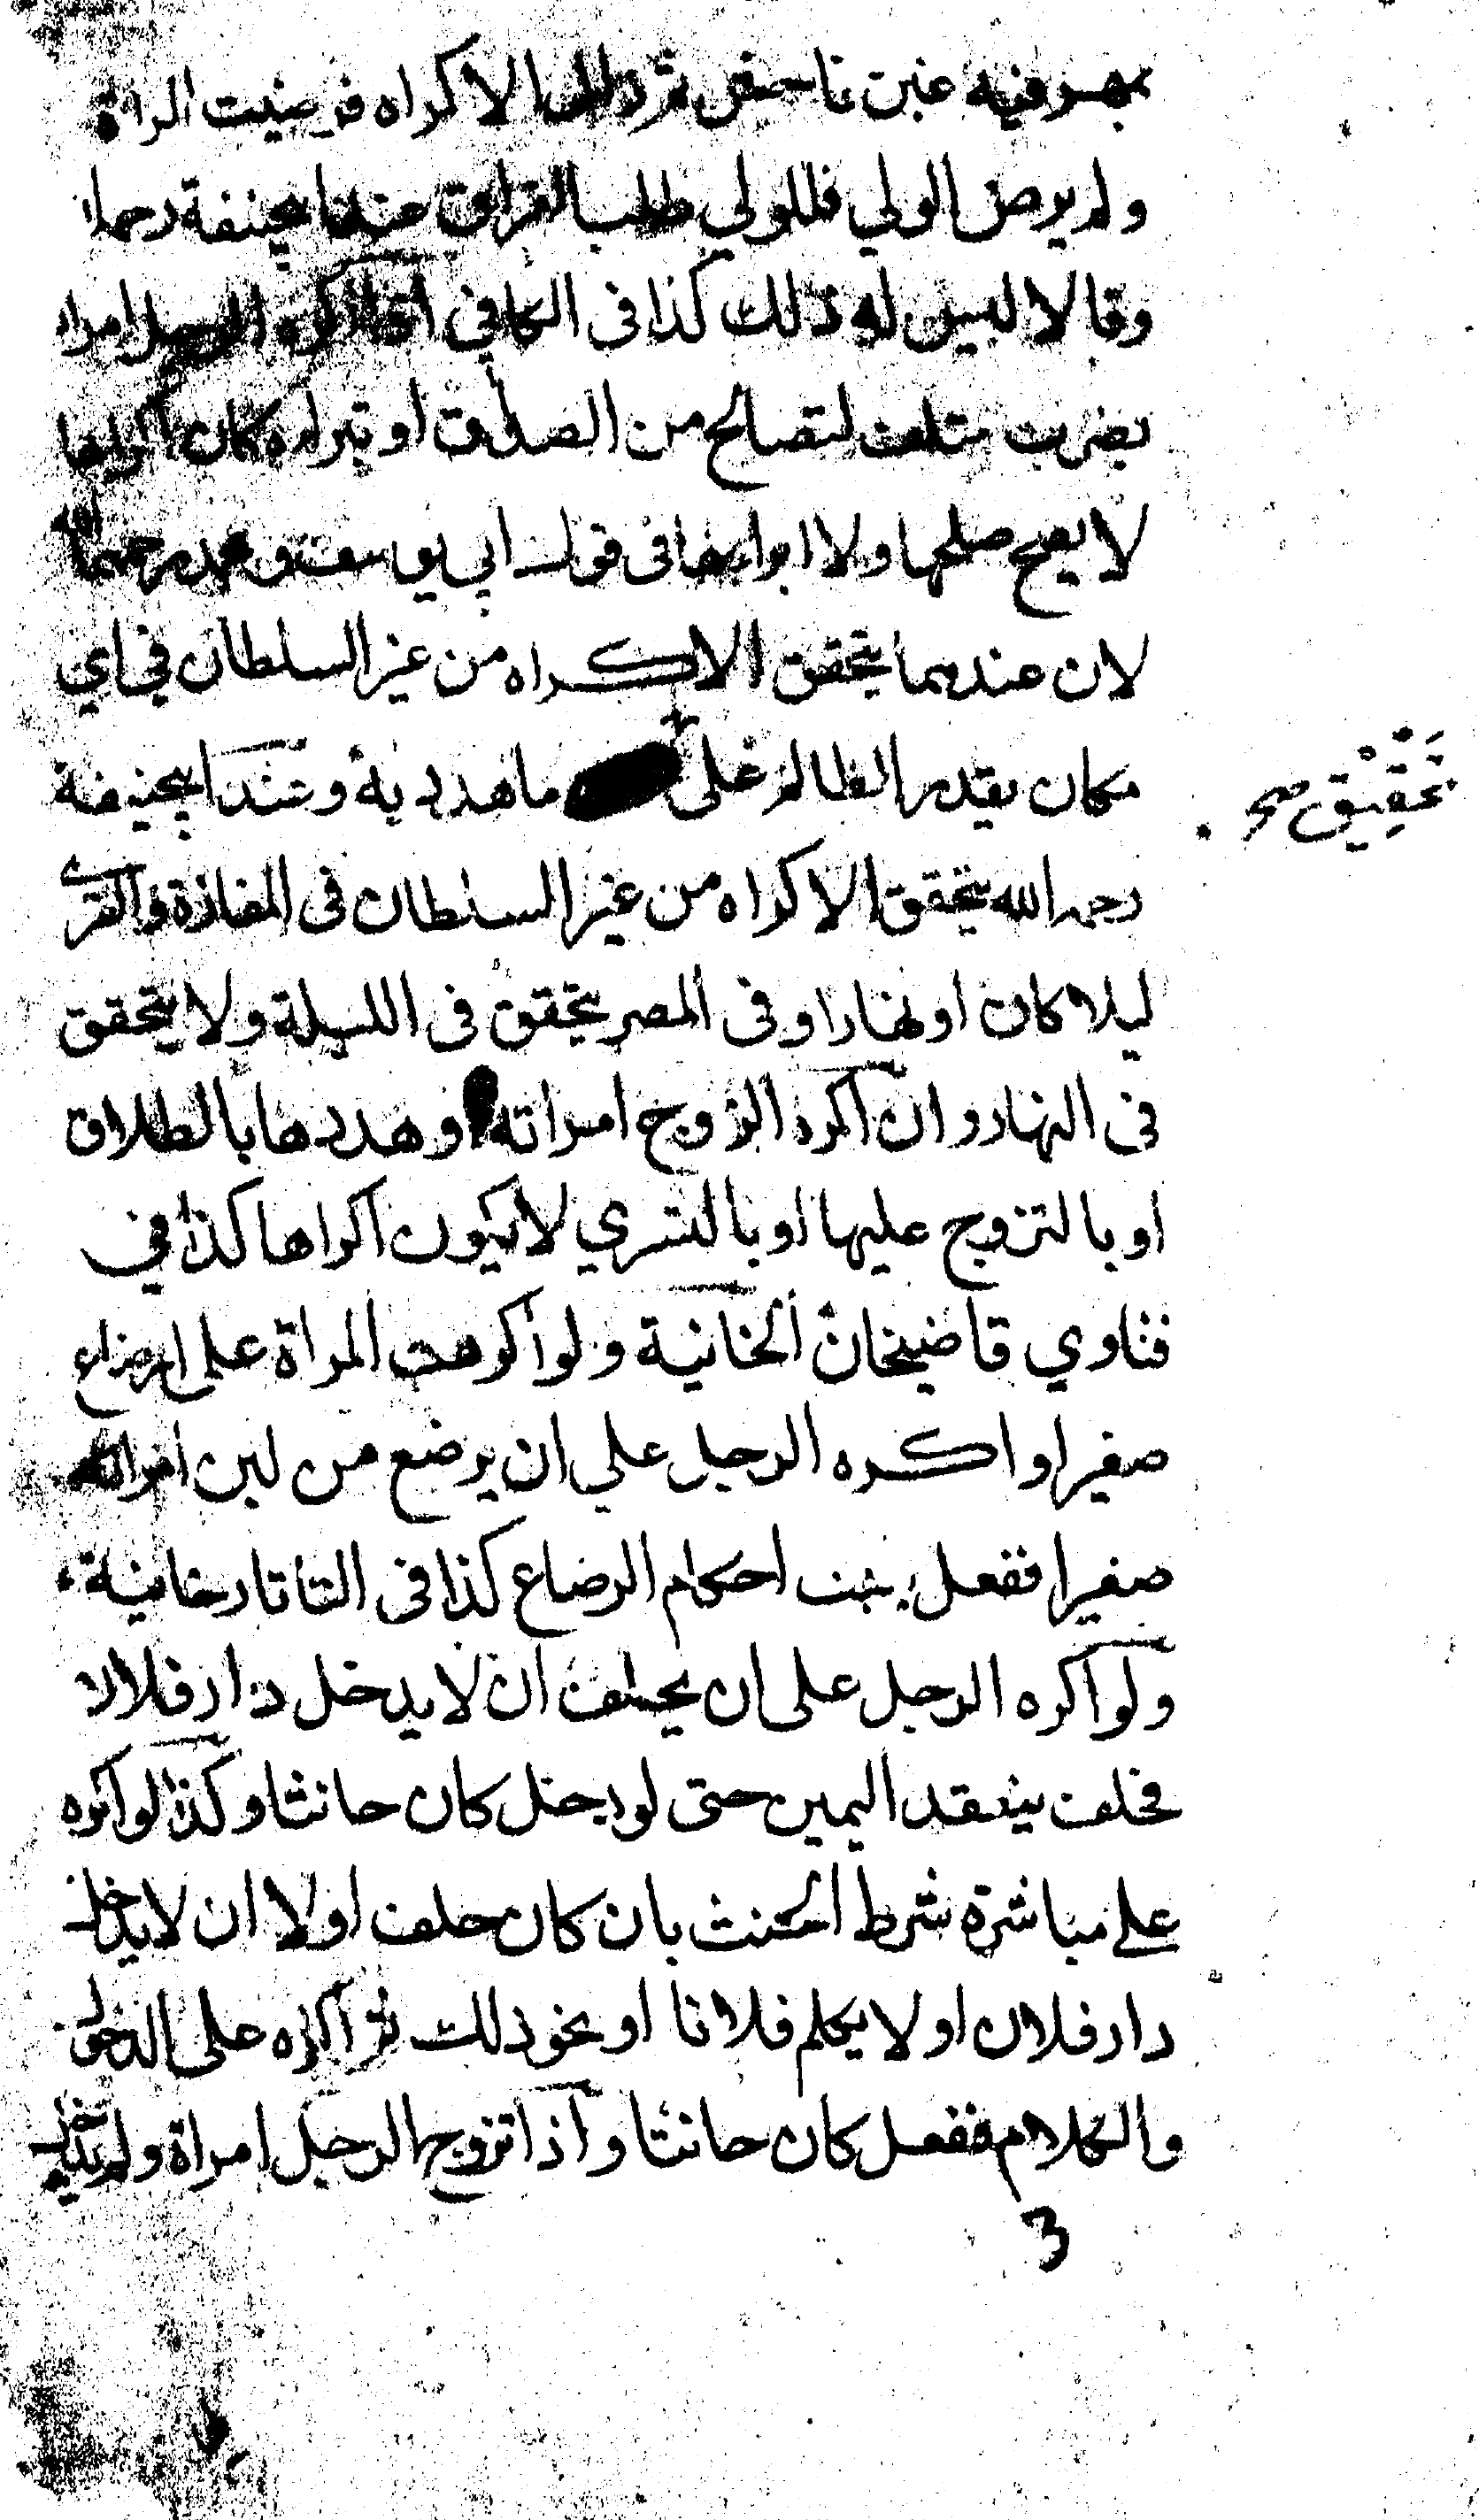 بمهر فيه غبن فاحش ثم زال الاكراه فرضيت المراة
ولم يرض الولي فللولي طلب الفراق عند ابيحنيفة رحمه الله
وقالا ليس له ذلك كذا فى الكافي اذا اكره الرجل امراته
بضرب متلف لتصالح من الصداق او تبراه كان اكراها
لا يصح صلحها ولا ابراءها فى قول ابي يوسف ومحمد رحمهما الله
لان عندهما يتحقق الاكراه من غير السلطان في اي
مكان يقدر الظالم على تحقيق صح ما هدد به وعند ابيحنيفة
رحمه الله يتحقق الاكراه من غير السلطان فى المفازة والقرى
ليلا كان او نهارا وفى المصر يتحقق فى الليلة ولا يتحقق
فى النهار وان اكره الزوج امراته او هددها بالطلاق
او بالتزوج عليها او بالتسري لا يكون اكراها كذا في
فتاوي قاضيخان الخانية ولو اكرهت المراة على ارضاع
صغير او اكره الرجل علي ان يرضع من لبن امراته
صغيرا ففعل يثبت احكام الرضاع كذا فى التاتارخانية
ولو اكره الرجل على ان يحلف ان لا يدخل دار فلان
فحلف ينعقد اليمين حتى لو دخل كان حانثا وكذا لو اكره
على مباشرة شرط الحنث بان كان حلف اولا ان لا يدخل
دار فلان او لا يكلم فلانا او نحو ذلك ثم اكره على الدخول
والكلام ففعل كان حانثا واذا تزوج الرجل امراة ولم يدخل
3